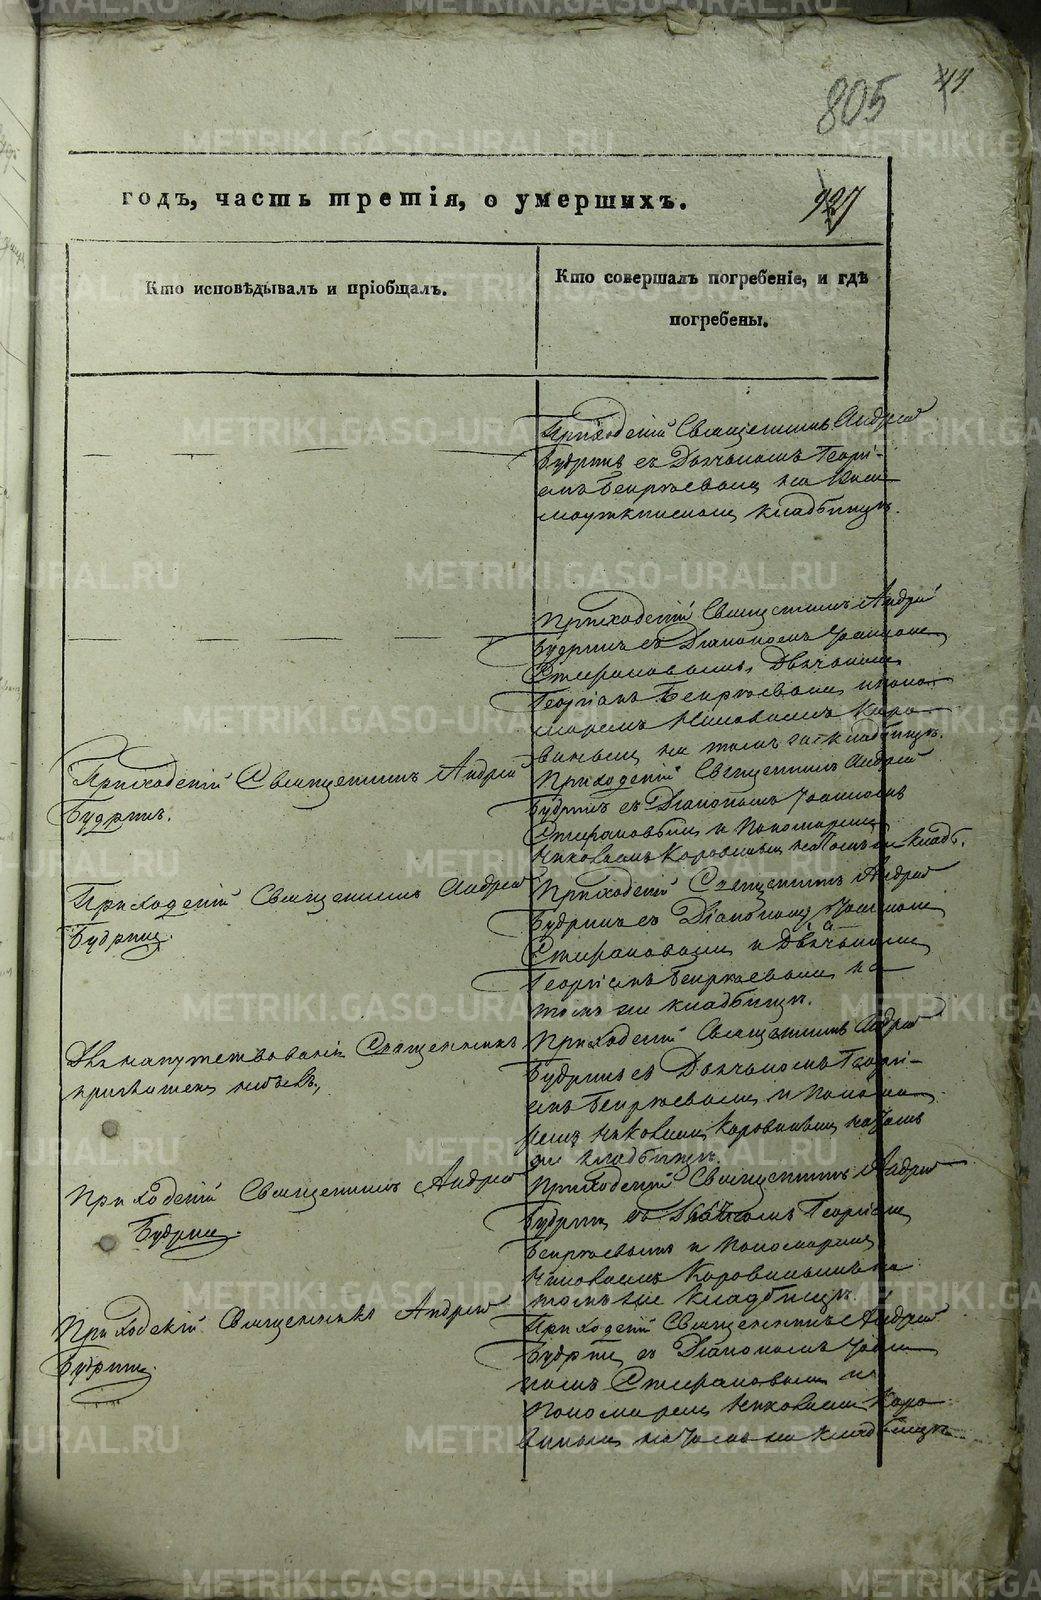 805
44
927
годъ, часть третія, о умершихъ.
Кто исповѣдывалъ и пріобщалъ.
Кто совершалъ погребеніе, и гдѣ
погребены.
Приходскій Священникъ Андрей
Будринъ съ Дьячкомъ Георгі-
емъ
кладбищѣ.
Приходскій Священникъ Андрей
Будринъ съ Діакономъ Іоанномъ
Стефановымъ, Дьячкомъ
Георгіемъ и поно-
маремъ Николаемъ Каро-
на томъ же кладбищѣ.
Приходскій Священникъ Андрей
Будринъ.
Приходскій Священникъ Андрей
Будринъ съ Діакономъ Іоанномъ
Стефановымъ и Пономаремъ
Николаемъ на томъ же кладб.
Приходскій Священникъ Андрей
Будринъ.
Приходскій Священникъ Андрей
Будринъ съ Діакономъ Іоанномъ
Стефановымъ и Дьячкомъ
Георгіемъ на
томъ же кладбищѣ.
Для напутствованія Священникъ
приглашенъ небылъ.
Приходскій Священникъ Андрей
Будринъ съ Дьячкомъ Георгі-
емъ и Понома-
ремъ Николаемъ на томъ
же кладбищѣ.
Приходскій Священникъ Андрей
Будринъ.
Приходскій Священникъ Андрей
Будринъ съ Георгіемъ
и Пономаремъ
Николаемъ на
томъ же кладбищѣ.
Приходскій Священникъ Андрей
Будринъ.
Приходскій Священникъ Андрей
Будринъ съ Діакономъ Іоан-
номъ Стефановымъ и
Пономаремъ Николаемъ Каро-
на томъ же кладбищѣ.
METRIKI.GASO-URAL.RU